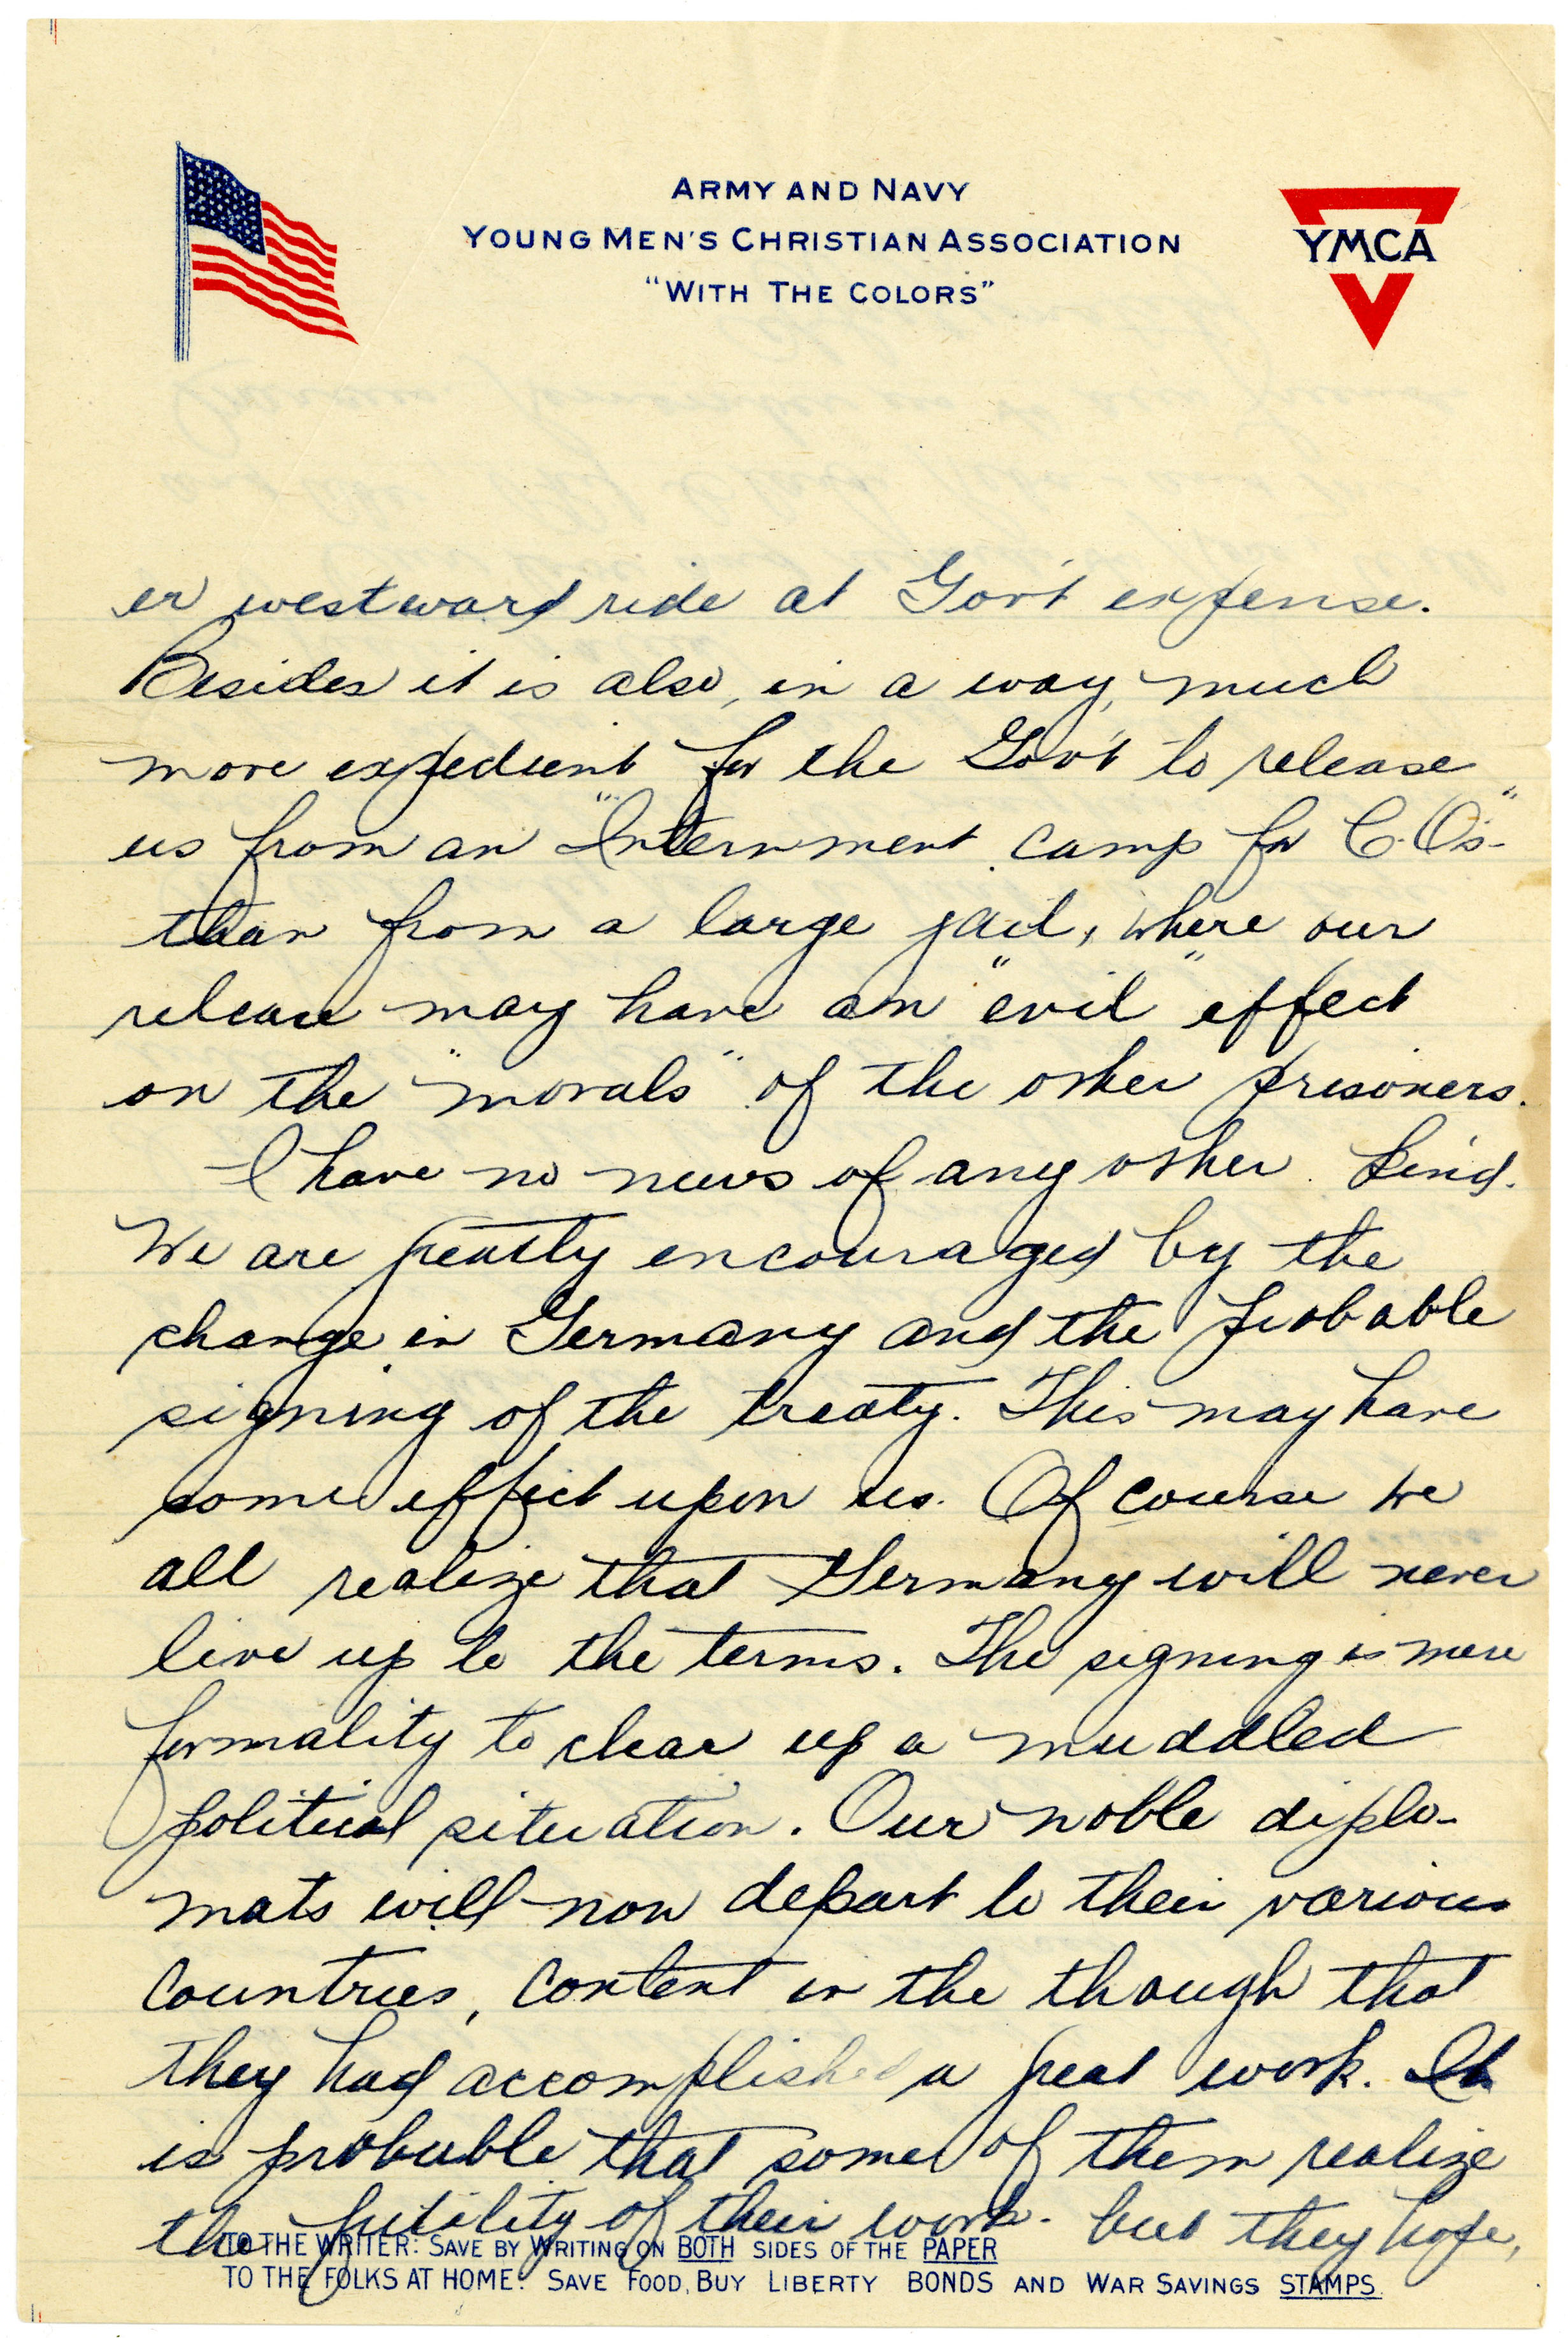 ARMY AND NAVY
YOUNG MEN'S CHRISTIAN ASSOCIATION
"WITH THE COLORS"
YMCA
er westward ride at Gov't expense.
Besides it is also, in a way, much
more expedient for the Gov't to release
us from an "Internment camp for C.O's"
than from a large jail, where our
release may have an "evil" effect
on the "morals" of the other prisoners.
I have no news of any other kind.
We are greatly encouraged by the
change in Germany and the probable
signing of the treaty. This may have
some effect upon us. Of course we
all realize that Germany will never
live up to the terms. The signing is mere
formality to clear up a muddled
political situation. Our noble diplo-
mats will now depart to their various
countries, content in the though that
they had accomplished a great work. It
is probable that some of them realize
the futility of their work. but they hope,
TO THE WRITER: SAVE BY WRITING ON BOTH SIDES OF THE PAPER
TO THE FOLKS AT HOME: SAVE FOOD, BUY LIBERTY BONDS AND WAR SAVINGS STAMPS.